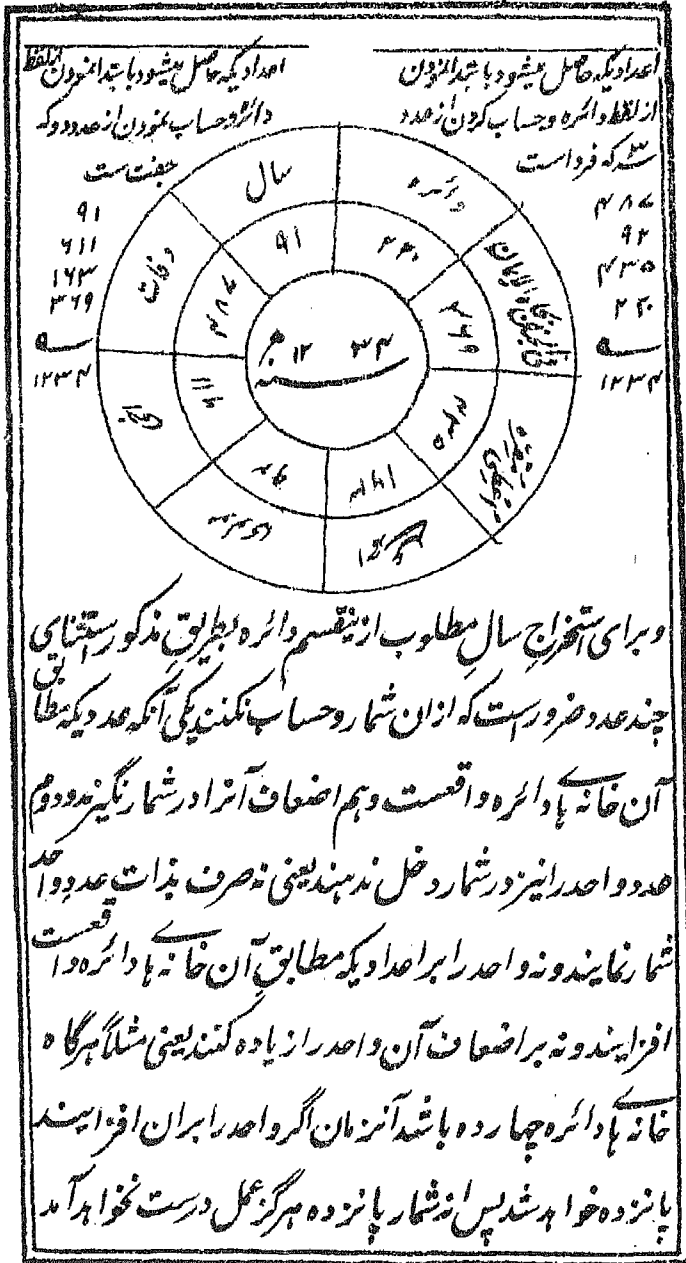 اعدادیکه حاصل میشود بابتدا نمودن
از لفظ دائره و حساب کردن از عدد
سه که فرد است
۴۸۷
۹۲
۴۳۵
۲۲۰
۱۲۳۴
اعدادیکه حاصل میشود بابتدا نمودن از لفظ
دائره و حساب نمودن از عدد دو که
جفت ست
۹۱
۶۱۱
۱۶۳
۳۶۹
۱۲۳۴
دائره
سال
وفات
۲۲۰
۹۱
۴۸۷
۳۶۹
۶۱۱
۴۳۵
۹۲
۱۲ ۳۴
و برای استخراج سال مطلوب ازینقسم دائره بطریق مذکور استثنای
چند عدد ضرور است که ازان شمار و حساب نکنند یکی آنکه عددیکه مطابق
آن خانه هاے دائره واقعست و هم اضعاف آنرا در شمار نگیرند و دوم
عدد واحد را نیز در شمار دخل ندهند یعنی نه صرف بذات عدد واحد
شمار نمایند و نه واحد را بر اعدادیکه مطابق آن خانه هاے دائره واقعست
افزایند و نه بر اضعاف آن واحد را زیاده کنند یعنی مثلاً هرگاه
خانه هاے دائره چهارده باشد آنزمان اگر واحد را بران افزایند
پانزده خواهد شد پس از شمار پانزده هرگز عمل درست نخواهد آمد